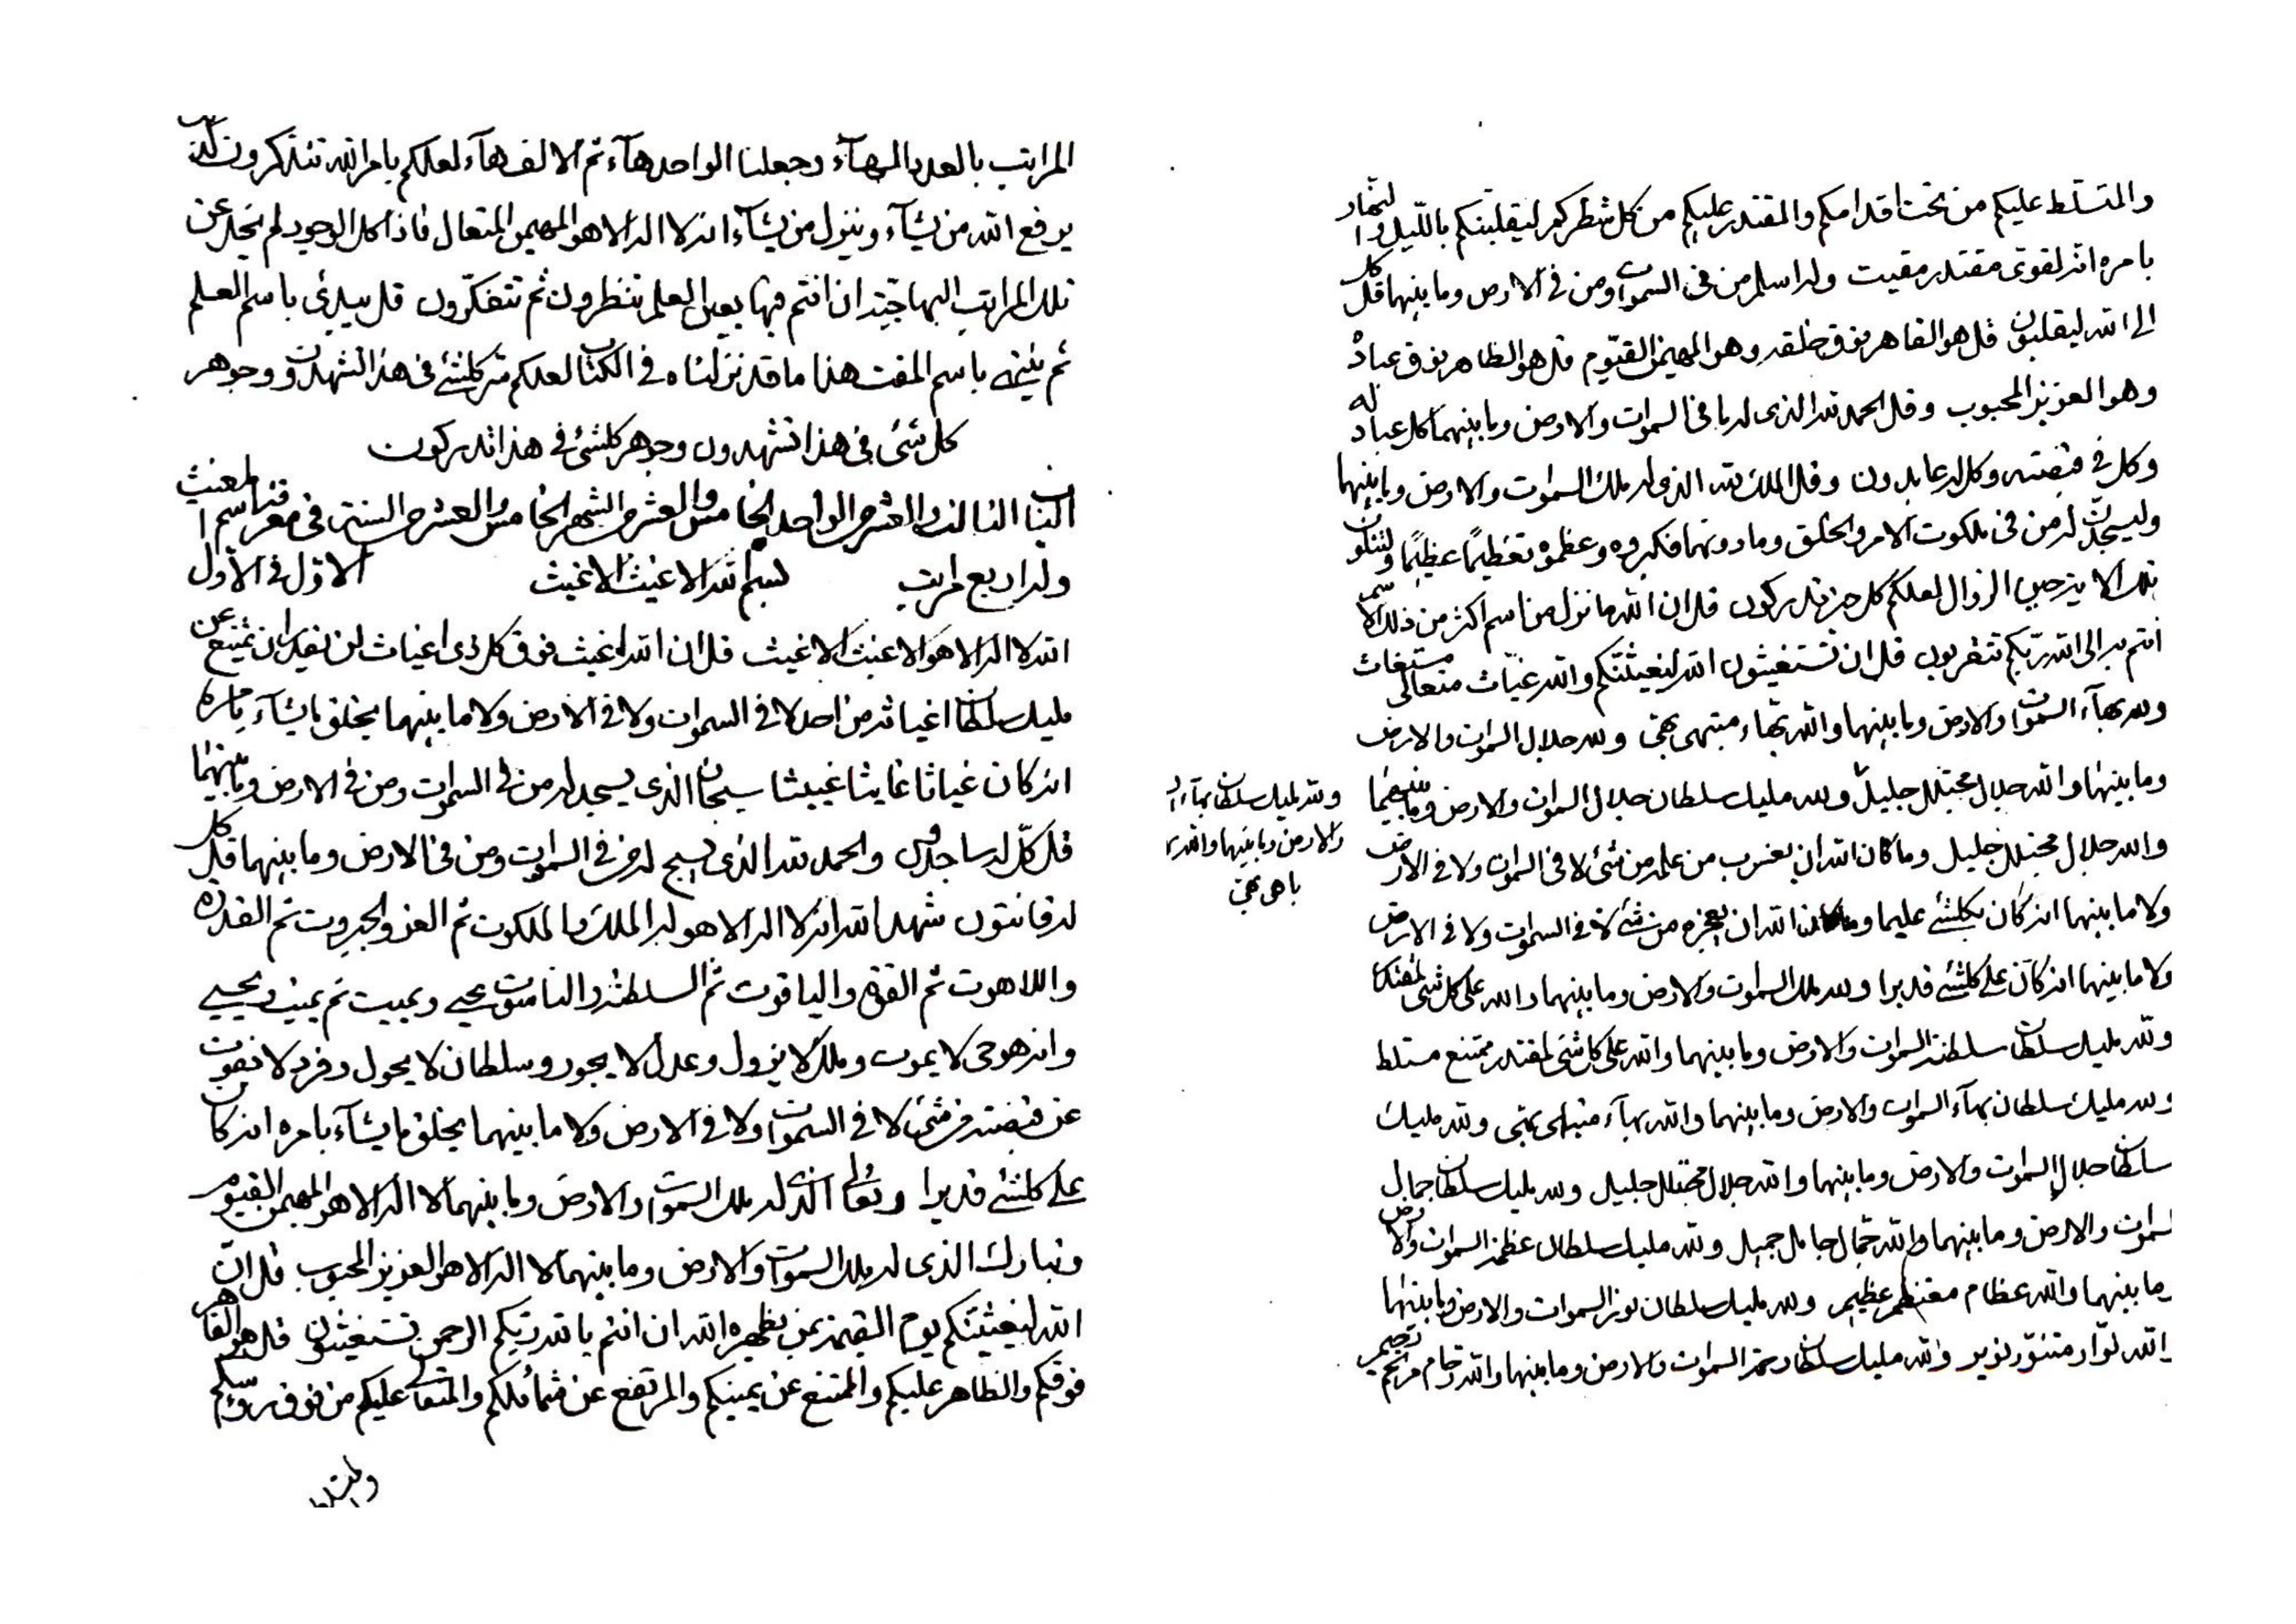 المراتب بالعدد البهآء وجعلنا الواحد هآء ثم الالف هآء لعلكم بامر الله تتذكرون كذلك
يرفع الله من يشآء وينزل من يشآء انه لا اله الا هو المهيمن المتعال فاذا كل الوجود لم يخل عن
تلك المراتب البهاجية ان انتم فيها بعين العلم تنظرون ثم تتفكرون قل يبدئ باسم العلم
ثم ينتهي باسم المقت هذا ما قد نزلناه في الكتاب لعلكم سر كلشئ في هذا تشهدون وجوهر
كل شئ في هذا تشهدون وجوهر كلشئ في هذا تدركون
الباب الثالث والعشر من الواحد الخامس والعشر من الشهر الخامس والعشر من السنة في معرفة اسم المغيث
وله اربع مراتب بسم الله الاغيث الاغيث الاول في الاول
الله لا اله الا هو الاغيث الاغيث قل ان الله اغيث فوق كل ذي اغياث لن يقدر ان يمتنع عن
مليك سلطان اغياثه من احد لا في السموات ولا في الارض ولا ما بينهما يخلق ما يشآء بامره
انه كان غياثا غايثا غييثا سبحان الذي يسجد له من في السموات ومن في الارض وما بينهما
قل كل له ساجدون والحمد لله الذي يسبح له من في السموات ومن في الارض وما بينهما قل كل
له قانتون شهد الله انه لا اله الا هو له الملك والملكوت ثم العز والجبروت ثم القدرة
واللاهوت ثم القوة والياقوت ثم السلطنة والناسوت يحيي ويميت ثم يميت ويحيي
وانه هو حي لا يموت وملك لا يزول وعدل لا يجور وسلطان لا يحول وفرد لا يفوت
عن قبضته من شئ لا في السموات ولا في الارض ولا ما بينهما يخلق ما يشآء بامره انه كان
على كلشئ قديرا وتعالى الذي له ملك السموات والارض وما بينهما لا اله الا هو المهيمن القيوم
وتبارك الذي له ملك السموات والارض وما بينهما لا اله الا هو العزيز المحبوب قل ان
الله ليغيثنكم يوم القيمة بمن يظهره الله ان انتم بالله ربكم الرحمن تستغيثون قل هو القاهر
فوقكم والظاهر عليكم والممتنع عن يمينكم والمرتفع عن شمائلكم والمتعالى عليكم من فوق رؤسكم
والمتسلط
والمتسلط عليكم من تحت اقدامكم والمقتدر عليكم من كل شطركم ليقلبنكم بالليل والنهار
بامره انه لقوي مقتدر مقيت وله اسلم من في السموات ومن في الارض وما بينهما قل كل
الى الله ليقلبون قل هو القاهر فوق خلقه وهو المهيمن القيوم قل هو الظاهر فوق عباده
وهو العزيز المحبوب وقل الحمد لله الذي له ما في السموات والارض وما بينهما كل عباد له
وكل في قبضته وكل له عابدون وقل الملك لله الذي له ملك السموات والارض وما بينهما
وليسجدن له من في ملكوت الامر والخلق وما دونهما فكبروه وعظموه تعظيما عظيما ولتتلون
تلك الاية من حين الزوال لعلكم كل حين تدركون قل ان الله ما نزل من اسم اكثر من ذلك الاسم
انتم به الى الله ربكم تتقربون قل ان تستغيثون الله ليغيثنكم والله غياث متعالى مستغاث
ولله بهآء السموات والارض وما بينهما والله بهآء مبتهى بهي ولله جلال السموات والارض
وما بينهما والله جلال مجتلل جليل ولله مليك سلطان جلال السموات والارض وما بينهما
ولله مليك سلطان بهآء ال
والارض وما بينهما والله ب
باهى بهي
والله جلال مجتلل جليل وما كان الله ان يعزب من علمه من شئ لا في السموات ولا في الارض
ولا ما بينهما انه كان بكلشئ عليما وما كان الله ان يعجزه من شئ لا في السموات ولا في الارض
ولا ما بينهما انه كان على كلشئ قديرا ولله ملك السموات والارض وما بينهما والله على كل شئ لمقتدر
ولله مليك سلطان سلطنة السموات والارض وما بينهما والله على كل شئ لمقتدر ممتنع مستلط
ولله مليك سلطان بهآء السموات والارض وما بينهما والله بهآء مبتهى بهي ولله مليك
سلطان جلال السموات والارض وما بينهما والله جلال مجتلل جليل ولله مليك سلطان جمال
السموات والارض وما بينهما والله جمال جامل جميل ولله مليك سلطان عظمة السموات والارض
وما بينهما والله عظام معتظم عظيم ولله مليك سلطان نور السموات والارض وما بينهما
والله نوار متنور نوير ولله مليك سلطان رحمة السموات والارض وما بينهما والله رحام مرتحم رحيم